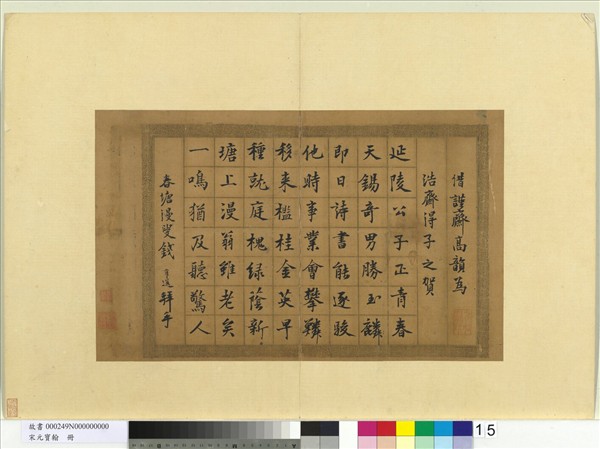 借謹齋高韻為
浩齋得子之賀
延陵公子正青春
天錫奇男勝玉麟
即日詩書能逐駿
他時事業會攀鱗
移来檻桂金英早
種就庭槐綠蔭新
瑭上漫翁雖老矣
一鳴猶及聽驚人
春塘漫叟錢拜手
故書 000249N000000000
宋元寶翰 冊
15